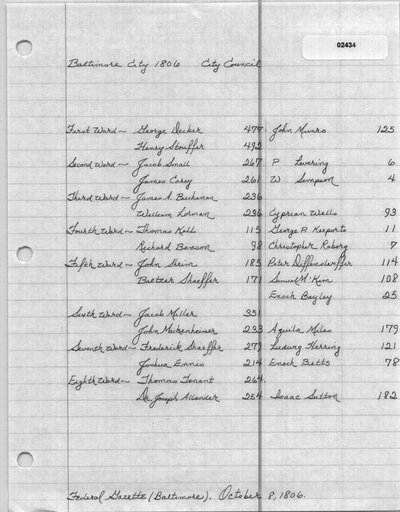 02434
Baltimore City 1806 City Council
First Ward~ George Decker 477 John Munro 125
Henry Stouffer 492
Second Ward~ Jacob Small 267 P Levering 6
James Carey 261 W Simpson 4
Third Ward~ James A. Buchanan 236
William Lorman 236 Cyprian Wells 93
Fourth Ward~ Thomas Kell 115 George P. Keeports 11
Richard Benson 98 Christopher Raborg 7
Fifth Ward~ John Shrim 185 Peter Diffenderffer 114
Baltzer Shaeffer 171 Samuel M'Kim 108
Enoch Bayley 25
Sixth Ward~ Jacob Miller 351
John Mackenheimer 233 Aquila Miles 179
Seventh Ward~ Frederick Shaeffer 279 Ludwig Herring 121
Joshua Ennis 214 Enoch Betts 78
Eighth Ward~ Thomas Tenant 264
Dr. Joseph Allender 254 Isaac Sutton 182
Federal Gazette (Baltimore). October 8, 1806.